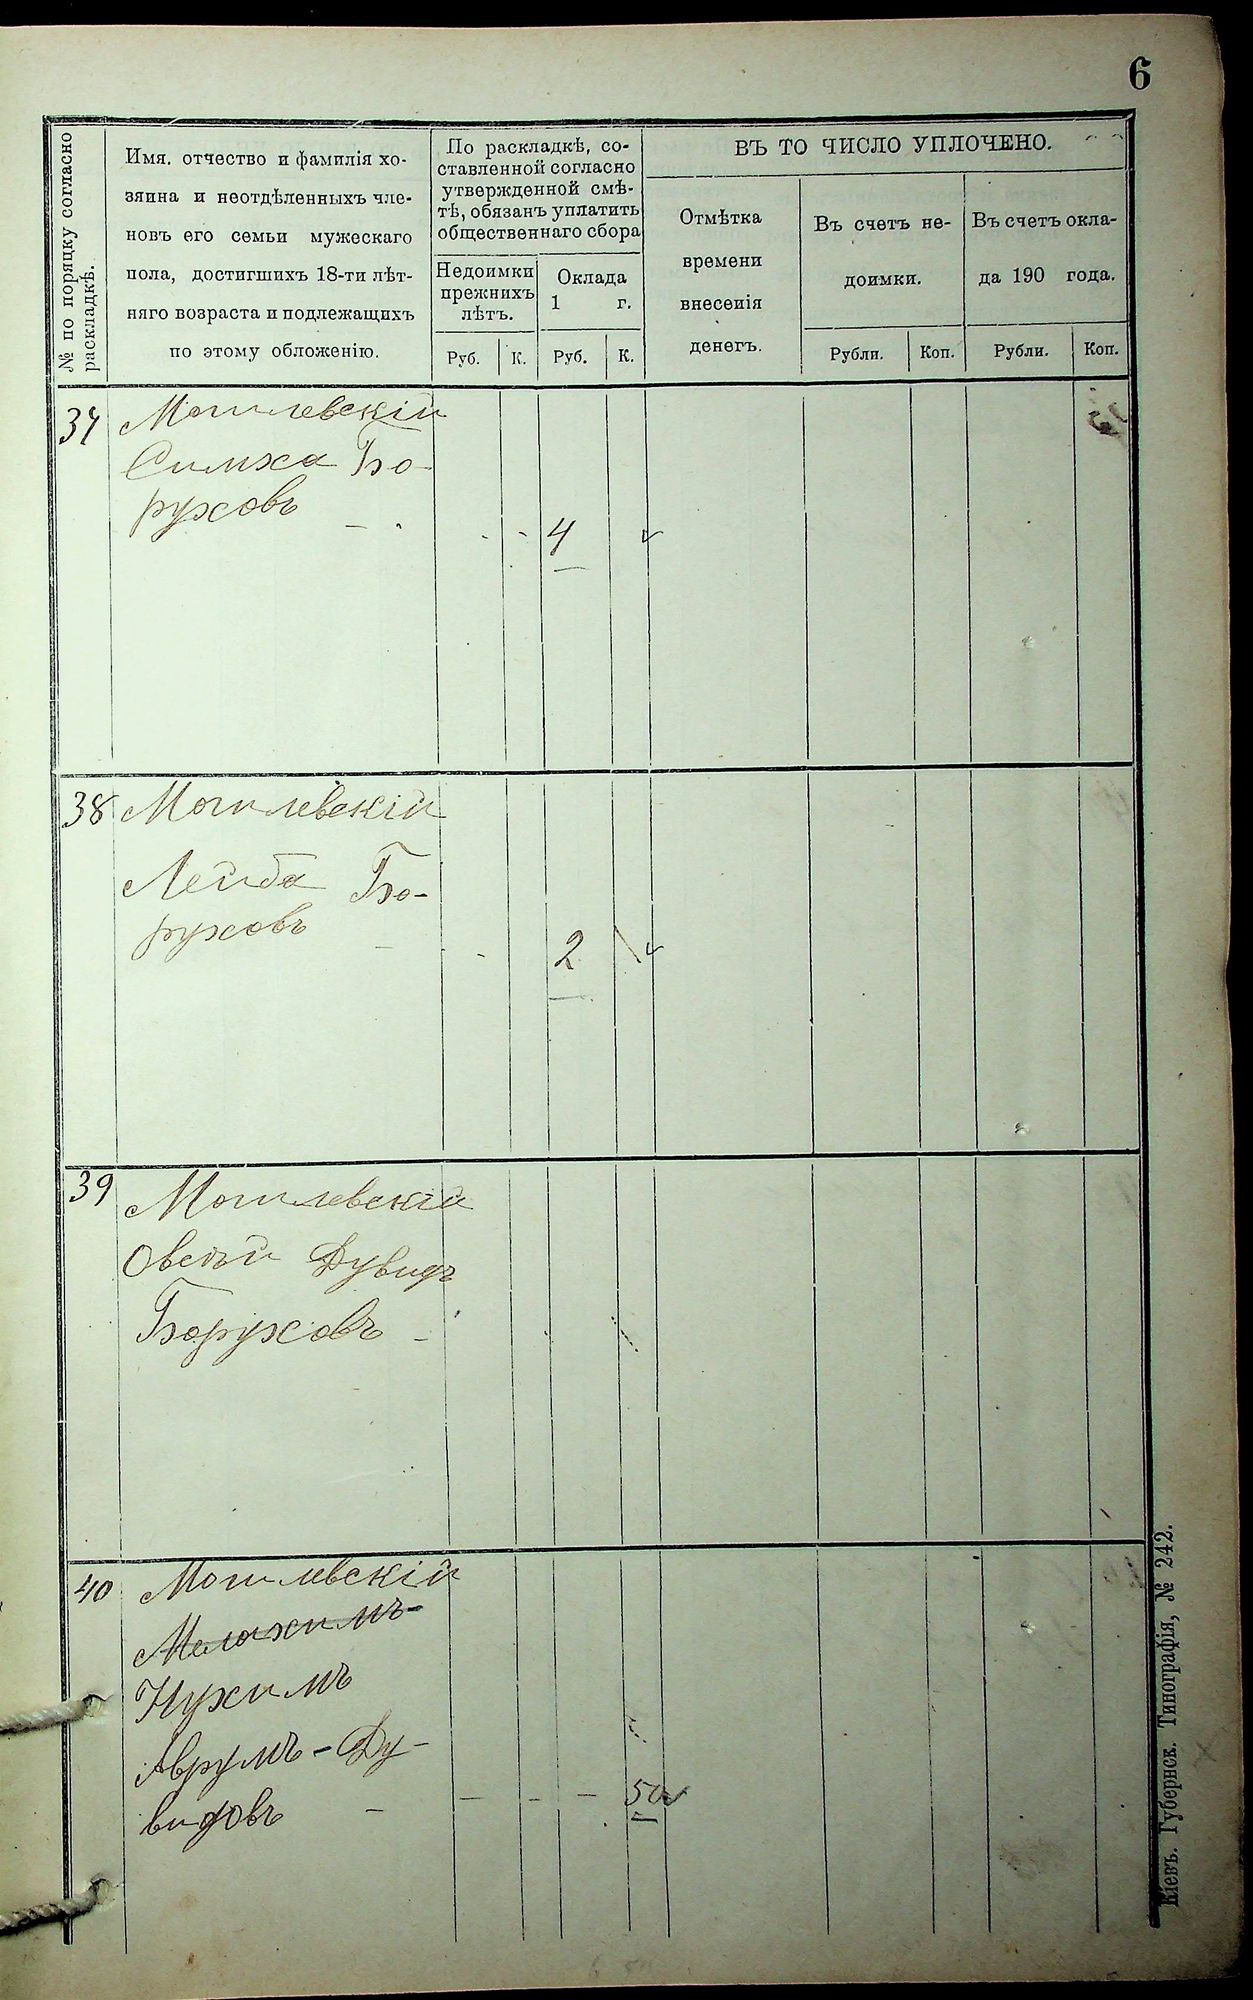 6
№ по порядку согласно
раскладкѣ.
Имя. отчество и фамилія хо-
зяина и неотдѣленныхъ чле-
новъ его семьи мужескаго
пола, достигшихъ 18-ти лѣт-
няго возраста и подлежащихъ
по этому обложенію.
По раскладкѣ, со-
ставленной согласно
утвержденной смѣ-
тѣ, обязанъ уплатить
общественнаго сбора
Недоимки
прежнихъ
лѣтъ.
Оклада
1 г.
Руб. К. Руб. К.
ВЪ ТО ЧИСЛО УПЛОЧЕНО.
Отмѣтка
времени
внесенія
денегъ.
Въ счетъ не-
доимки.
Въ счетъ окла-
да 190 года.
Рубли. Коп. Рубли. Коп.
37 Могилевскій
Симха Бо-
руховъ - 4
38 Могилевскій
Лейба Бо-
руховъ - 2
39 Могилевскій
Овсѣй Дувидъ
Боруховъ -
40 Могилевскій
Мелахимъ-
Нухимъ
Аврумъ-Ду-
видовъ - - - - 50
Кіевъ. Губернск. Типографія, № 242.